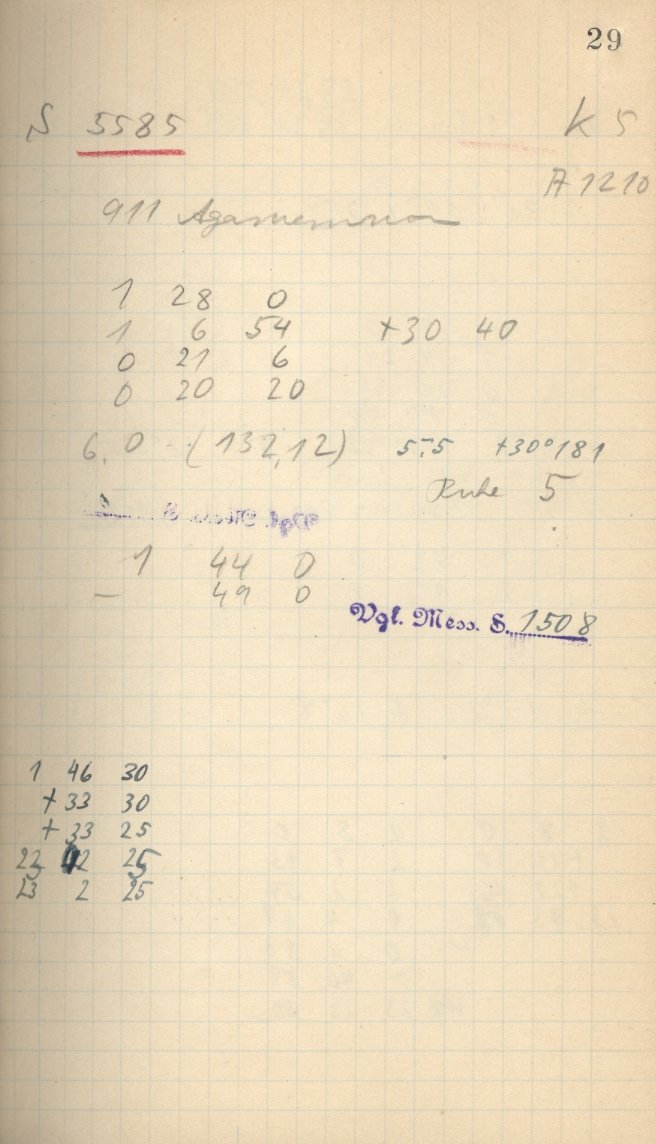 29
S 5585 K 5
A 1210
911 Agamemnon
1 28 0
1 6 54 +30 40
0 21 6
0 20 20
6,0 (132,12) 5,5 +30°181
Ruhe 5
1 44 0
– 49 0
Vgl. Mess. S. 1508
1 46 30
+33 30
+33 25
2 25
23 2 25